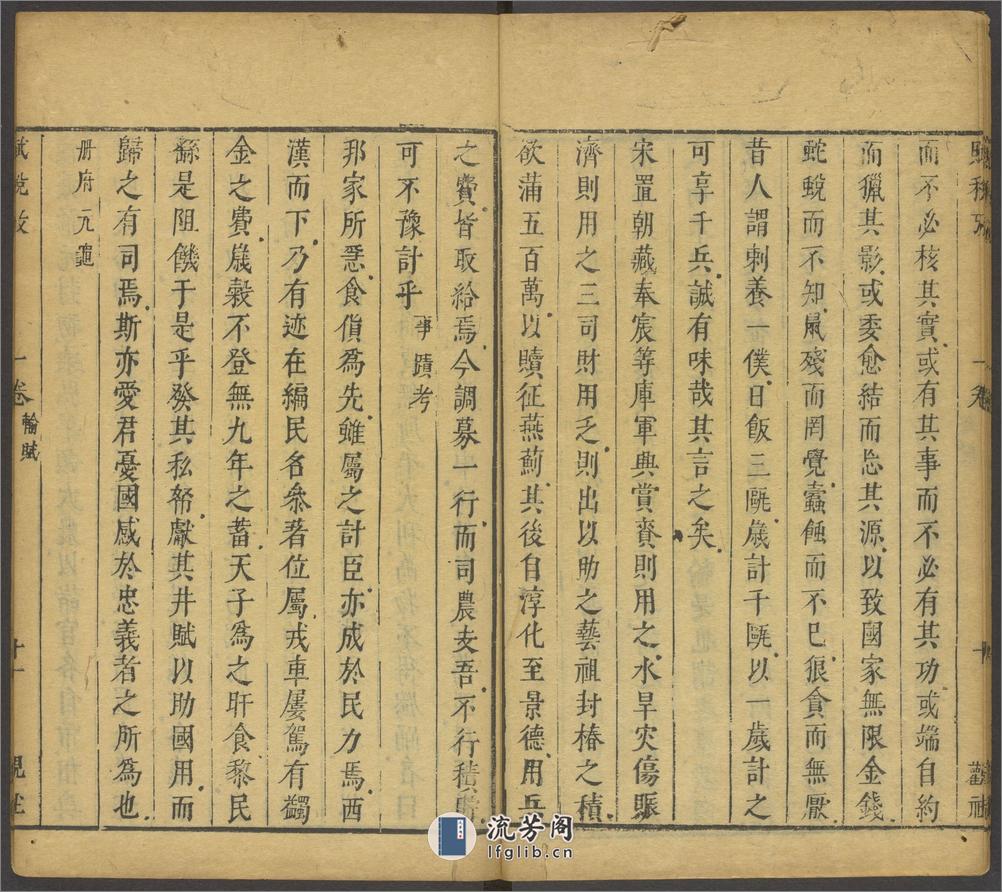 而不必核其實或有其事而不必有其功或端自約
而獵其影或委愈結而忘其源以致國家無限金錢
蛇蛻而不知鼠殘而罔覺蠹蝕而不已狼貪而無厭
昔人謂剌養一僕日飯三甌歲計千甌以一歲計之
可享千兵誠有味哉其言之矣
宋置朝藏奉宸等庫軍興賞賚則用之水旱灾傷賑
濟則用之三司財用乏則出以助之藝祖封樁之積
欲蒲五百萬以贖征燕薊其後自淳化至景德用兵
之費皆取給焉今調募一行而司農支吾不行積貯
可不豫計乎 事蹟考
邦家所急食貨為先雖屬之計臣亦成於民力焉西
漢而下乃有迹在編民名叅著位屬戎車屢駕有蠲
金之費歲榖不登無九年之蓄天子為之旰食黎民
繇是阻饑于是乎發其私帑獻其井賦以助國用而
歸之有司焉斯亦愛君憂國感於忠義者之所為也
册府元龜
賦稅攷
一卷
輸賦
十一
流芳阁
lfglib.cn